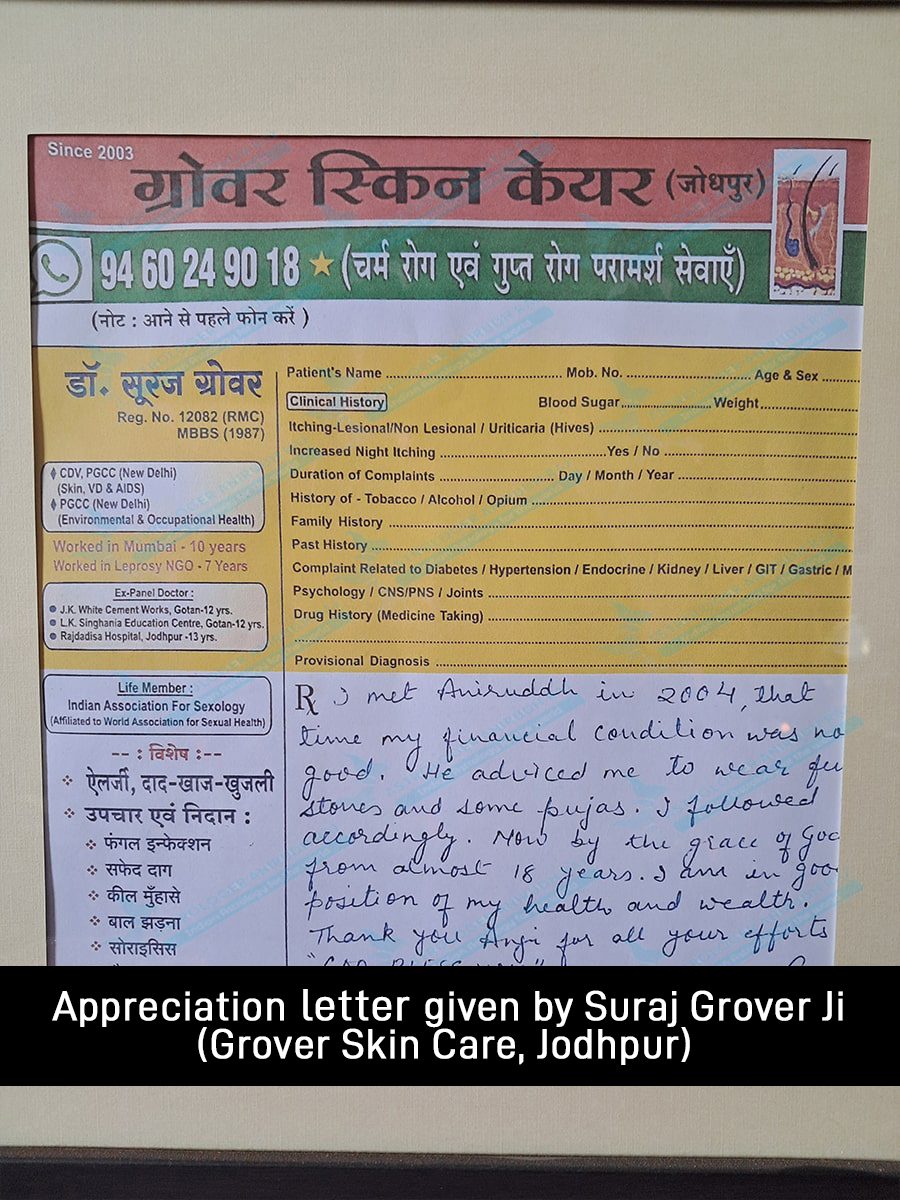 Since 2003
ग्रोवर स्किन केयर (जोधपुर)
94 60 24 90 18 ★ (चर्म रोग एवं गुप्त रोग परामर्श सेवाएँ)
(नोट : आने से पहले फोन करें )
डॉ. सूरज ग्रोवर
Reg. No. 12082 (RMC)
MBBS (1987)
CDV, PGCC (New Delhi)
(Skin, VD & AIDS)
PGCC (New Delhi)
(Environmental & Occupational Health)
Worked in Mumbai - 10 years
Worked in Leprosy NGO - 7 Years
Ex-Panel Doctor :
J.K. White Cement Works, Gotan-12 yrs.
L.K. Singhania Education Centre, Gotan-12 yrs.
Rajdadisa Hospital, Jodhpur -13 yrs.
Life Member :
Indian Association For Sexology
(Affiliated to World Association for Sexual Health)
-- : विशेष :--
ऐलर्जी, दाद-खाज-खुजली
उपचार एवं निदान :
फंगल इन्फेक्शन
सफेद दाग
कील मुँहासे
बाल झड़ना
सोराइसिस
Patient's Name ........ Mob. No. ........ Age & Sex ......
Clinical History Blood Sugar........ Weight........
Itching-Lesional/Non Lesional / Uriticaria (Hives) ........
Increased Night Itching ........ Yes / No ........
Duration of Complaints ........ Day / Month / Year ........
History of - Tobacco / Alcohol / Opium ........
Family History ........
Past History ........
Complaint Related to Diabetes / Hypertension / Endocrine / Kidney / Liver / GIT / Gastric / M
Psychology / CNS/PNS / Joints ........
Drug History (Medicine Taking) ........
Provisional Diagnosis ........
Rx I met Aniruddh in 2004, that
time my financial condition was no
good. He adviced me to wear
stones and some pujas. I followed
accordingly. Now by the grace of
from almost 18 years. I am in
position of my health and wealth.
Thank you for all your efforts
Appreciation letter given by Suraj Grover Ji
(Grover Skin Care, Jodhpur)